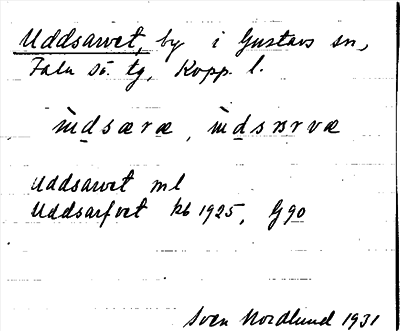 Uddsarvet, by i Gustavs sn,
Falu sö. tg, Kopp. l.
ùdsæræ, ùdsɐrvæ
Uddsarvet ml
Uddsarfvet kb 1925, G90
Sven Nordlund 1931